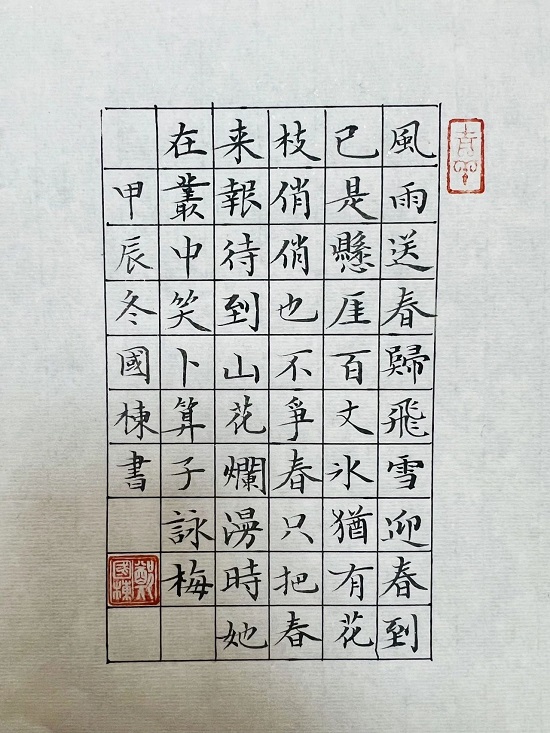 風雨送春歸飛雪迎春到
已是懸厓百丈氷猶有花
枝俏俏也不爭春只把春
来報待到山花爛漫時她
在叢中笑卜算子詠梅
甲辰冬國棟書
國棟